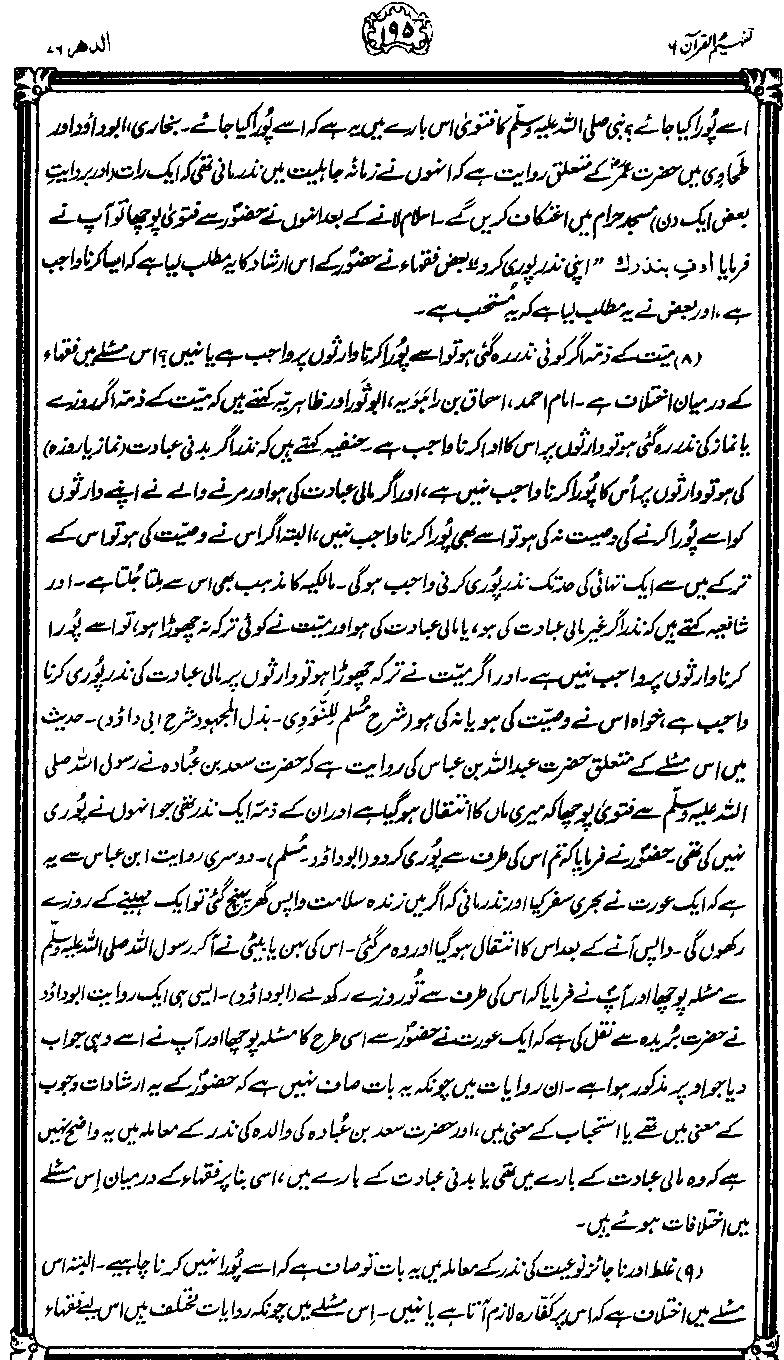 تفہیم القرآن ۶
۱۹۵
الدھر ۷۶
اسے پُورا کیا جائے؟ نبی صلی اللہ علیہ وسلّم کا فتویٰ اس بارے میں یہ ہے کہ اسے پُورا کیا جائے۔ بخاری، ابوداؤد اور
طحاوی میں حضرت عمرؓ کے متعلق روایت ہے کہ انہوں نے زمانۂ جاہلیت میں نذر مانی تھی کہ ایک رات (اور بروایتِ
بعض ایک دن) مسجد حرام میں اعتکاف کریں گے۔ اسلام لانے کے بعد انہوں نے حضورؐ سے فتویٰ پوچھا تو آپ نے
فرمایا أوفِ بنذرك "اپنی نذر پوری کرو" بعض فقہاء نے حضورؐ کے اس ارشاد کا یہ مطلب لیا ہے کہ ایسا کرنا واجب
ہے، اور بعض نے یہ مطلب لیا ہے کہ یہ مُستحب ہے۔
(۸) میّت کے ذمّہ اگر کوئی نذر رہ گئی ہو تو اسے پُورا کرنا وارثوں پر واجب ہے یا نہیں؟ اس مسئلے میں فقہاء
کے درمیان اختلاف ہے۔ امام احمد، اسحاق بن راہَوَیہ، ابوثَور اور ظاہریّہ کہتے ہیں کہ میّت کے ذمّہ اگر روزے
یا نماز کی نذر رہ گئی ہو تو وارثوں پر اس کا ادا کرنا واجب ہے۔ حنفیہ کہتے ہیں کہ نذر اگر بدنی عبادت (نماز یا روزہ)
کی ہو تو وارثوں پر اُس کا پُورا کرنا واجب نہیں ہے، اور اگر مالی عبادت کی ہو اور مرنے والے نے اپنے وارثوں
کو اسے پُورا کرنے کی وصیت نہ کی ہو تو اسے بھی پُورا کرنا واجب نہیں، البتہ اگر اس نے وصیّت کی ہو تو اس کے
ترکے میں سے ایک تہائی کی حد تک نذر پوری کرنی واجب ہوگی۔ مالکیہ کا مذہب بھی اس سے ملتا جُلتا ہے۔ اور
شافعیہ کہتے ہیں کہ نذر اگر غیر مالی عبادت کی ہو، یا مالی عبادت کی ہو اور میّت نے کوئی ترکہ نہ چھوڑا ہو، تو اسے پُورا
کرنا وارثوں پر واجب نہیں ہے۔ اور اگر میّت نے ترکہ چھوڑا ہو تو وارثوں پر مالی عبادت کی نذر پوری کرنا
واجب ہے، خواہ اس نے وصیّت کی ہو یا نہ کی ہو (شرح مُسلم لِلنَّوَوِی۔ بذل المجہود شرح ابی داؤد)۔ حدیث
میں اس مسئلے کے متعلق حضرت عبداللہ بن عباس کی روایت ہے کہ حضرت سعد بن عُبادہ نے رسول اللہ صلی
اللہ علیہ وسلّم سے فتویٰ پوچھا کہ میری ماں کا انتقال ہوگیا ہے اور ان کے ذمّہ ایک نذر تھی جو انہوں نے پُوری
نہیں کی تھی۔ حضورؐ نے فرمایا کہ تم اس کی طرف سے پُوری کر دو (ابوداؤد۔ مُسلم)۔ دوسری روایت ابن عباس سے یہ
ہے کہ ایک عورت نے بحری سفر کیا اور نذر مانی کہ اگر میں زندہ سلامت واپس گھر پہنچ گئی تو ایک مہینے کے روزے
رکھوں گی۔ واپس آنے کے بعد اس کا انتقال ہوگیا اور وہ مر گئی۔ اس کی بہن یا بیٹی نے آ کر رسول اللہ صلی اللہ علیہ وسلّم
سے مسئلہ پوچھا اور آپؐ نے فرمایا کہ اس کی طرف سے تُو روزے رکھ لے (ابوداؤد)۔ ایسی ہی ایک روایت ابوداؤد
نے حضرت بُریدہ سے نقل کی ہے کہ ایک عورت نے حضورؐ سے اسی طرح کا مسئلہ پوچھا اور آپ نے اسے وہی جواب
دیا جو اوپر مذکور ہوا ہے۔ ان روایات میں چونکہ یہ بات صاف نہیں ہے کہ حضورؐ کے یہ ارشادات وجوب
کے معنی میں تھے یا استحباب کے معنی میں، اور حضرت سعد بن عُبادہ کی والدہ کی نذر کے معاملہ میں یہ واضح نہیں
ہے کہ وہ مالی عبادت کے بارے میں تھی یا بدنی عبادت کے بارے میں، اسی بنا پر فقہاء کے درمیان اِس مسئلے
میں اختلافات ہوئے ہیں۔
(۹) غلط اور ناجائز نوعیت کی نذر کے معاملہ میں یہ بات تو صاف ہے کہ اسے پُورا نہیں کرنا چاہیے۔ البتہ اس
مسئلے میں اختلاف ہے کہ اس پر کفّارہ لازم آتا ہے یا نہیں۔ اِس مسئلے میں چونکہ روایات مختلف ہیں اس لیے فقہاء